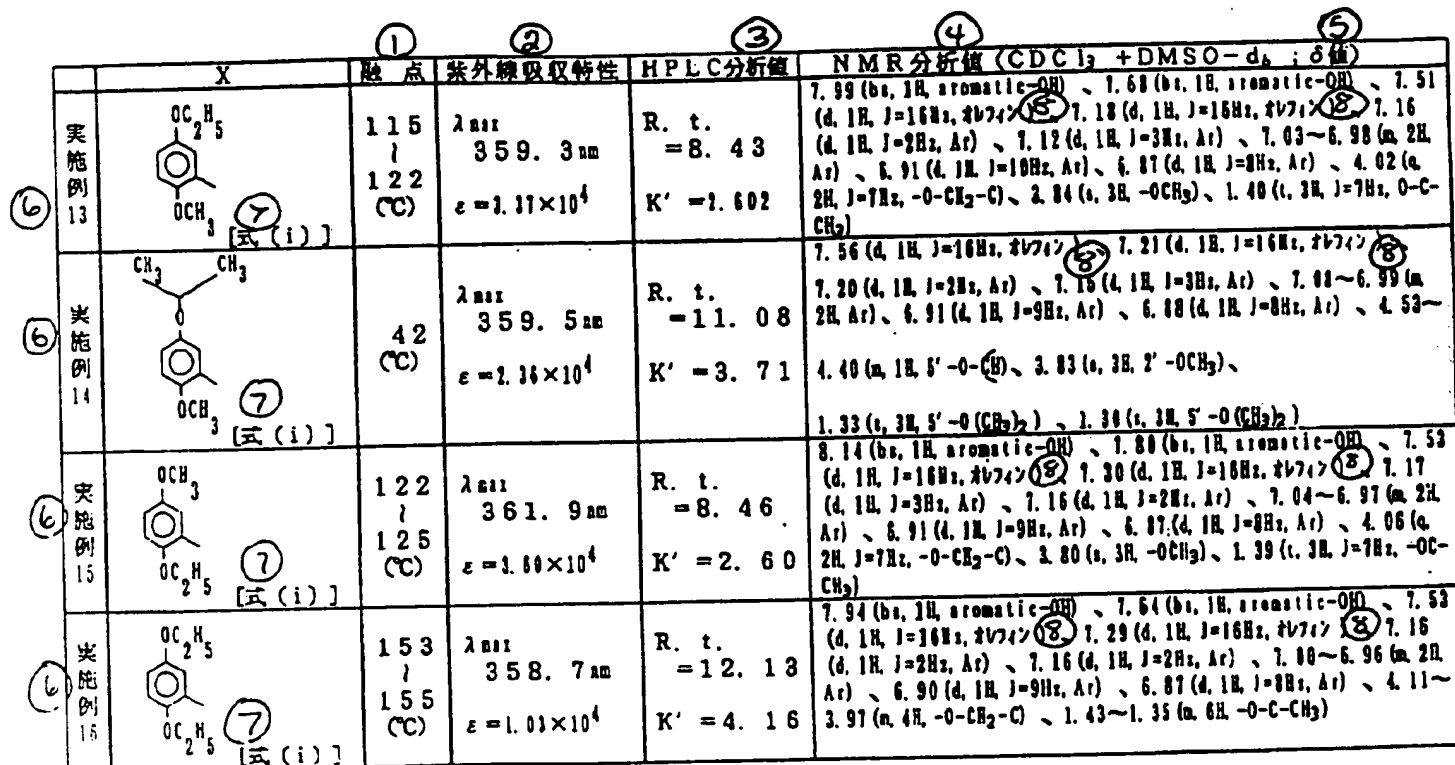 ① ② ③ ④ ⑤
X 融 点 紫外線吸収特性 HPLC分析値 NMR分析値 (CDCl3 +DMSO-d6 ; δ値)
⑥ 実施例13
OC2H5
OCH3 ⑦
[式(i)]
115
~
122
(℃)
λmax
359. 3nm
R. t.
=8. 43
K' =2.602
7.99 (bs, 1H, aromatic-OH) 、7.68 (bs, 1H, aromatic-OH) 、7.51
(d, 1H, J=16Hz, オレフィン ⑧ 7.18 (d, 1H, J=16Hz, オレフィン ⑧ 7.16
(d, 1H, J=2Hz, Ar) 、7.12 (d, 1H, J=3Hz, Ar) 、7.03~6.98 (m, 2H,
Ar) 、6.91 (d, 1H, J=10Hz, Ar) 、6.87 (d, 1H, J=8Hz, Ar) 、4.02 (q,
2H, J=7Hz, -O-CH2-C) 、3.84 (s, 3H, -OCH3) 、1.40 (t, 3H, J=7Hz, O-C-
CH3)
⑥ 実施例14
CH3 CH3
O
OCH3 ⑦
[式(i)]
42
(℃)
λmax
359. 5nm
ε =2.36×10⁴
R. t.
=11. 08
K' =3. 71
7.56 (d, 1H, J=16Hz, オレフィン ⑧ 7.21 (d, 1H, J=16Hz, オレフィン ⑧
7.20 (d, 1H, J=2Hz, Ar) 、7.15 (d, 1H, J=3Hz, Ar) 、6.99 (m,
2H, Ar) 、6.91 (d, 1H, J=9Hz, Ar) 、6.88 (d, 1H, J=8Hz, Ar) 、4.53~
4.40 (m, 1H, 5' -O-CH) 、3.83 (s, 3H, 2' -OCH3) 、
1.33 (s, 3H, 5' -O (CH3)2 ) 、1.30 (s, 3H, 5' -O (CH3)2 )
⑥ 実施例15
OCH3
OC2H5 ⑦
[式(i)]
122
~
125
(℃)
λmax
361. 9nm
R. t.
=8. 46
K' =2. 60
8.14 (bs, 1H, aromatic-OH) 、7.80 (bs, 1H, aromatic-OH) 、7.53
(d, 1H, J=16Hz, オレフィン ⑧ 7.30 (d, 1H, J=16Hz, オレフィン ⑧ 7.17
(d, 1H, J=3Hz, Ar) 、7.16 (d, 1H, J=2Hz, Ar) 、7.04~6.97 (m, 2H,
Ar) 、6.91 (d, 1H, J=9Hz, Ar) 、6.87 (d, 1H, J=8Hz, Ar) 、4.06 (q,
2H, J=7Hz, -O-CH2-C) 、3.80 (s, 3H, -OCH3) 、1.39 (t, 3H, J=7Hz, -OC-
CH3)
⑥ 実施例16
OC2H5
OC2H5 ⑦
[式(i)]
153
~
155
(℃)
λmax
358. 7nm
ε =1.03×10⁴
R. t.
=12. 13
K' =4. 16
7.94 (bs, 1H, aromatic-OH) 、7.64 (bs, 1H, aromatic-OH) 、7.53
(d, 1H, J=16Hz, オレフィン ⑧ 7.29 (d, 1H, J=16Hz, オレフィン ⑧ 7.16
(d, 1H, J=2Hz, Ar) 、7.16 (d, 1H, J=2Hz, Ar) 、6.96 (m, 2H,
Ar) 、6.90 (d, 1H, J=9Hz, Ar) 、6.87 (d, 1H, J=8Hz, Ar) 、4.11~
3.97 (m, 4H, -O-CH2-C) 、1.43~1.35 (m, 6H, -O-C-CH3)